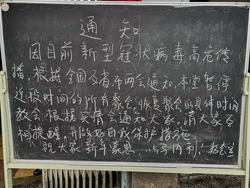 通知
因目前新型冠状病毒高危传
播,根据全国及省市两会通知,本堂暂停
近段时间的所有聚会,恢复聚会的具体时间
教会根据实情会通知大家,请大家互
相提醒,并做好自我保护措施
祝大家新年蒙恩